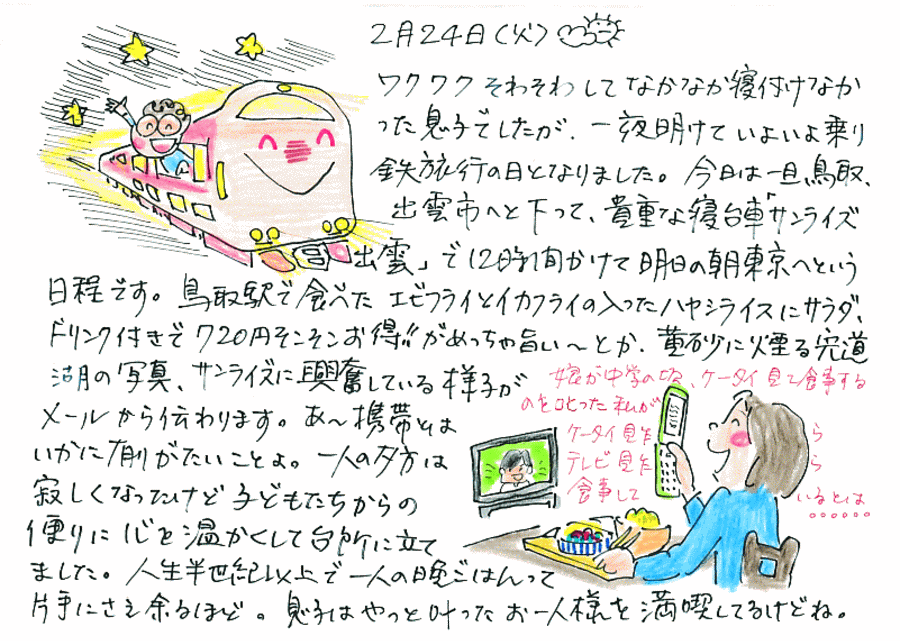 2月24日(火)
ワクワクそわそわしてなかなか寝付けなか
った息子でしたが、一夜明けていよいよ乗り
鉄旅行の日となりました。今日は一旦鳥取、
出雲市へと下って、貴重な寝台車「サンライズ
出雲」で12時間かけて明日の朝東京へという
日程です。鳥取駅で食べたエビフライとイカフライの入ったハヤシライスにサラダ、
ドリンク付きで720円そこそこお得"がめっちゃ旨い〜とか、黄砂に煙る宍道
湖の写真、サンライズに興奮している様子が
メールから伝わります。あ〜携帯とは
いかに有難がたいことよ。一人の夕方は
寂しくなったけど子どもたちからの
便りに心を温かくして台所に立て
ました。人生半世紀以上で一人の晩ごはんって
片手にさえ余るほど。息子はやっと叶ったお一人様を満喫してるけどね。
娘が中学の頃、ケータイ見て食事する
のを叱った私が
ケータイ見ながら
テレビ見ながら
食事しているとは……